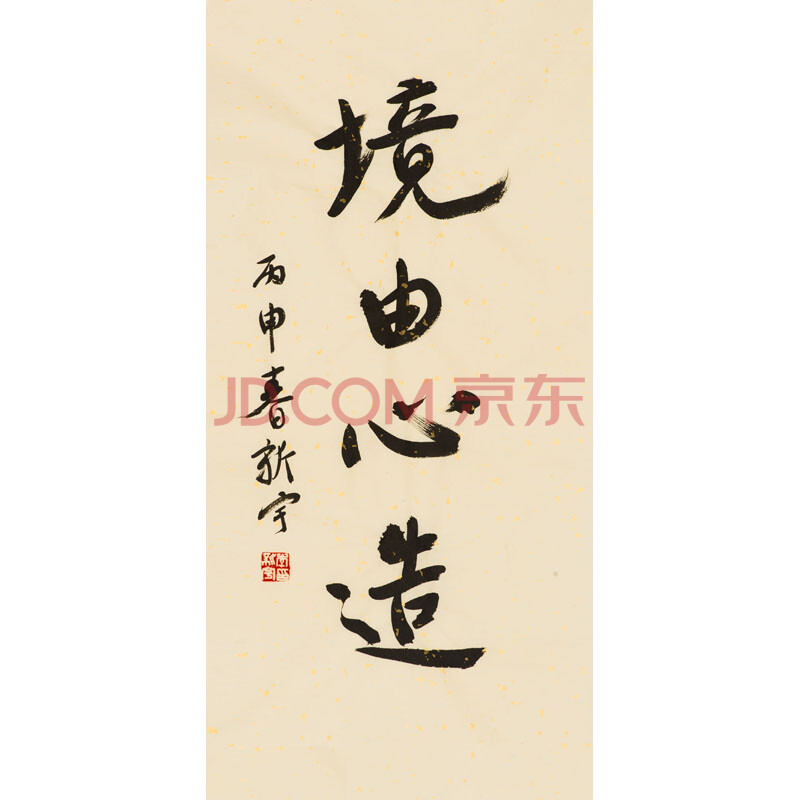 境由心造
丙申春新宇
JD.COM 京东